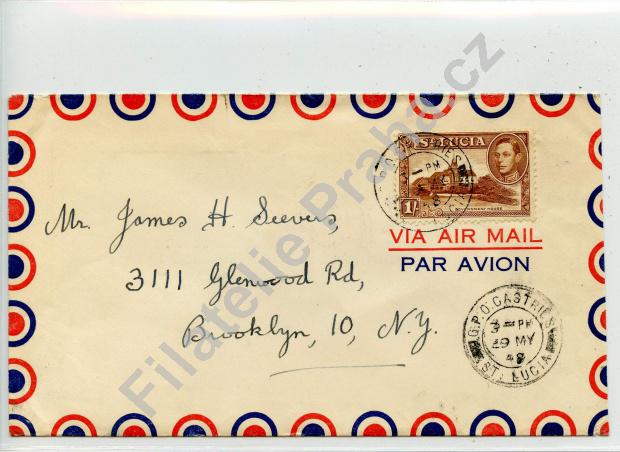 ST LUCIA
1/-
GOVERNMENT HOUSE
VIA AIR MAIL
PAR AVION
Mr. James H. Seevers,
3111 Glenwood Rd,
Brooklyn, 10, N.Y.
G.P.O. CASTRIES
3 - PM
29 MY
48
ST. LUCIA
Filatelie Praha.cz